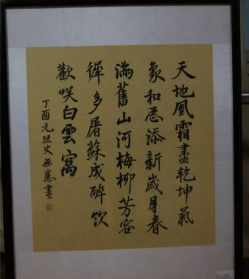 天地風霜盡乾坤氣
象和添新歲月春
滿舊山河梅柳芳容
徲多屠蘇成醉飲
歡咲白雲窩
丁酉元旦